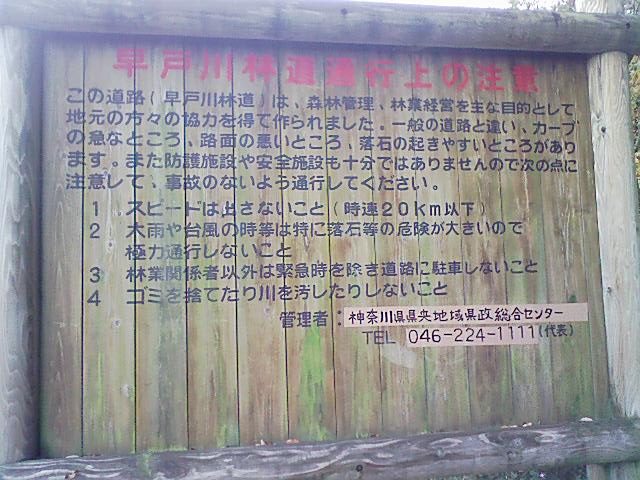 早戸川林道通行上の注意
この道路(早戸川林道)は、森林管理、林業経営を主な目的として
地元の方々の協力を得て作られました。一般の道路と違い、カーブ
の急なところ、路面の悪いところ、落石の起きやすいところがあり
ます。また防護施設や安全施設も十分ではありませんので次の点に
注意して、事故のないよう通行してください。
1 スピードは出さないこと(時速20km以下)
2 大雨や台風の時等は特に落石等の危険が大きいので
極力通行しないこと
3 林業関係者以外は緊急時を除き道路に駐車しないこと
4 ゴミを捨てたり川を汚したりしないこと
管理者:神奈川県県央地域県政総合センター
TEL 046-224-1111(代表)